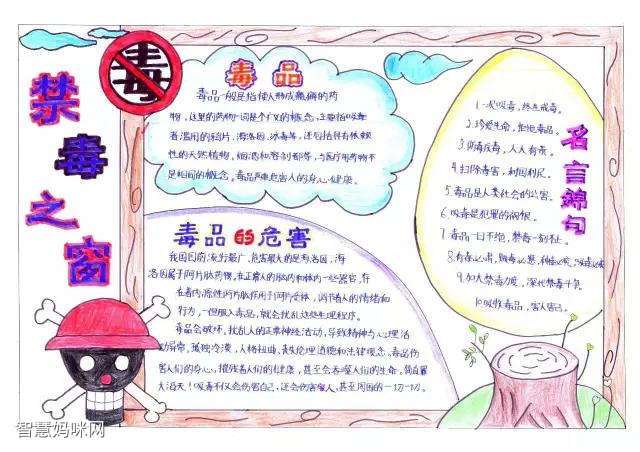 禁毒之窗
毒
毒品
毒品一般是指使人形成瘾癖的药
物，这里的药物一词是个广义的概念，主要指吸毒
者滥用的鸦片、海洛因、冰毒等，还包括具有依赖
性的天然植物，烟、酒和溶剂等，与医疗用药物不
是相同的概念。毒品严重危害人的身心健康。
毒品的危害
我国目前流行最广、危害最大的是海洛因，海
洛因属于阿片肽药物，在正常人的脑内和体内一些器官，存
在着内源性阿片肽作用于阿片受体，调节着人的情绪和
行为，一但服入毒品，就会扰乱这些生理程序。
毒品会破坏、扰乱人的正常神经活动，导致精神与心理活
动异常，孤独冷漠，人格扭曲，丧失伦理道德和法律观念。毒品伤
害人们的身心，摧残着人们的健康，甚至会吞噬人们的生命，简直罪
大滔天！吸毒不仅会伤害自己，还会伤害家人，甚至周围的一切一切。
名言锦句
1.一次吸毒，终生戒毒。
2.珍爱生命，拒绝毒品。
3.防毒反毒，人人有责。
4.扫除毒害，利国利民。
5.毒品是人类社会的公害。
6.吸毒是犯罪的祸根。
7.毒品一日不绝，禁毒一刻不止。
8.有毒必肃，贩毒必惩，种毒必究，吸毒必戒
9.加大禁毒力度，深化禁毒斗争。
10.吸食毒品，害人害己。
智慧妈咪网